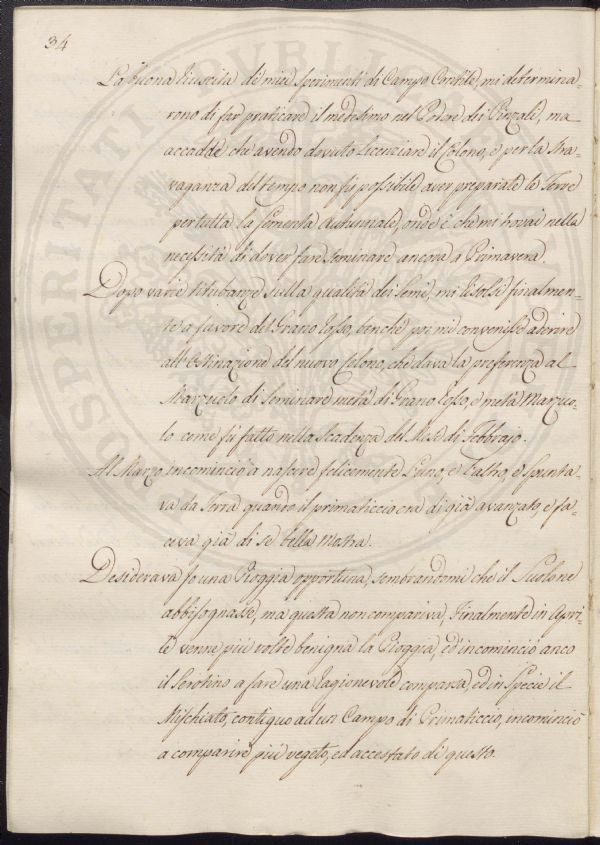 34
La buona riuscita de miei sperimenti di Campo Cortile, mi determina-
rono di far praticare il medesimo nel Podere dei Pinzale, ma
accadde che avendo dovuto licenziare il Colono, e per la stra-
vaganza del tempo non fù possibile aver preparate le Terre
per tutta la sementa Autunnale, onde è che mi trovai nella
necessità di dover fare seminare ancora a Primavera.
Dopo varie titubanze sulla qualità dei semi, mi risolsi finalmen-
te a favore del Grano Rosso, benchè poi mi convenisse aderire
all'Ostinazione del nuovo Colono, che dava la preferenza al
Marzuolo di seminare metà di Grano Rosso, e metà Marzuo-
lo come fù fatto nella scadenza del Mese di Febbrajo.
Al Marzo incominciò a nascere felicemente l'uno, e l'altro, e spunta-
va da Terra quando il primaticcio era di già avanzato e fa-
ceva già di se bella Mostra.
Desiderava Io una Pioggia opportuna, sembrandomi che il Suolo ne
abbisognasse, ma questa non compariva, Finalmente in Apri-
le venne più volte benigna la Pioggia, ed incominciò anco
il Serotino a fare una ragionevole comparsa, ed in Specie il
Mischiato, contiguo ad un Campo di Primaticcio, incominciò
a comparire più vegeto, ed accestato di questo.